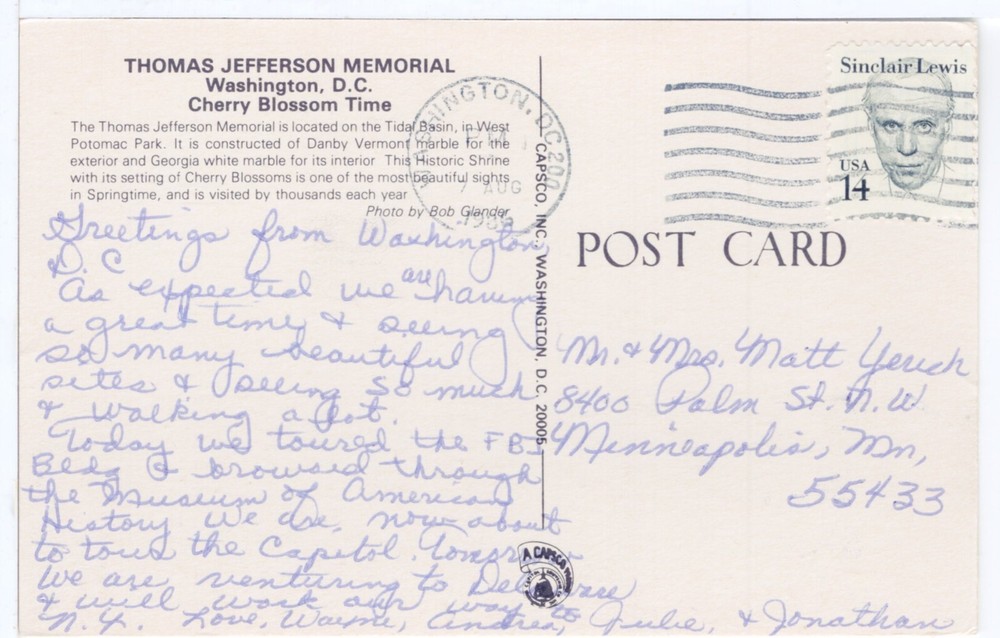 THOMAS JEFFERSON MEMORIAL
Washington, D.C.
Cherry Blossom Time
The Thomas Jefferson Memorial is located on the Tidal Basin, in West
Potomac Park. It is constructed of Danby Vermont marble for the
exterior and Georgia white marble for its interior This Historic Shrine
with its setting of Cherry Blossoms is one of the most beautiful sights
in Springtime, and is visited by thousands each year
Photo by Bob Glander
Greetings from Washington
D.C
As expected we are having
a great time & seeing
so many beautiful
sites & seeing so much
& walking a lot.
Today we toured the FBI
Bldg & browsed through
the Museum of American
History We are, now about
to tour the Capitol. Tomorrow
we are venturing to Delaware
& will work our way to
N.Y. Love, Wayne, Andrea, Julie, & Jonathan
CAPSCO, INC., WASHINGTON, D.C. 20005
A CAPSCO
WASHINGTON, DC 200
7 AUG
Sinclair Lewis
USA
14
POST CARD
Mr. & Mrs. Matt Yerich
8400 Palm St. N.W
Minneapolis, Mn,
55433